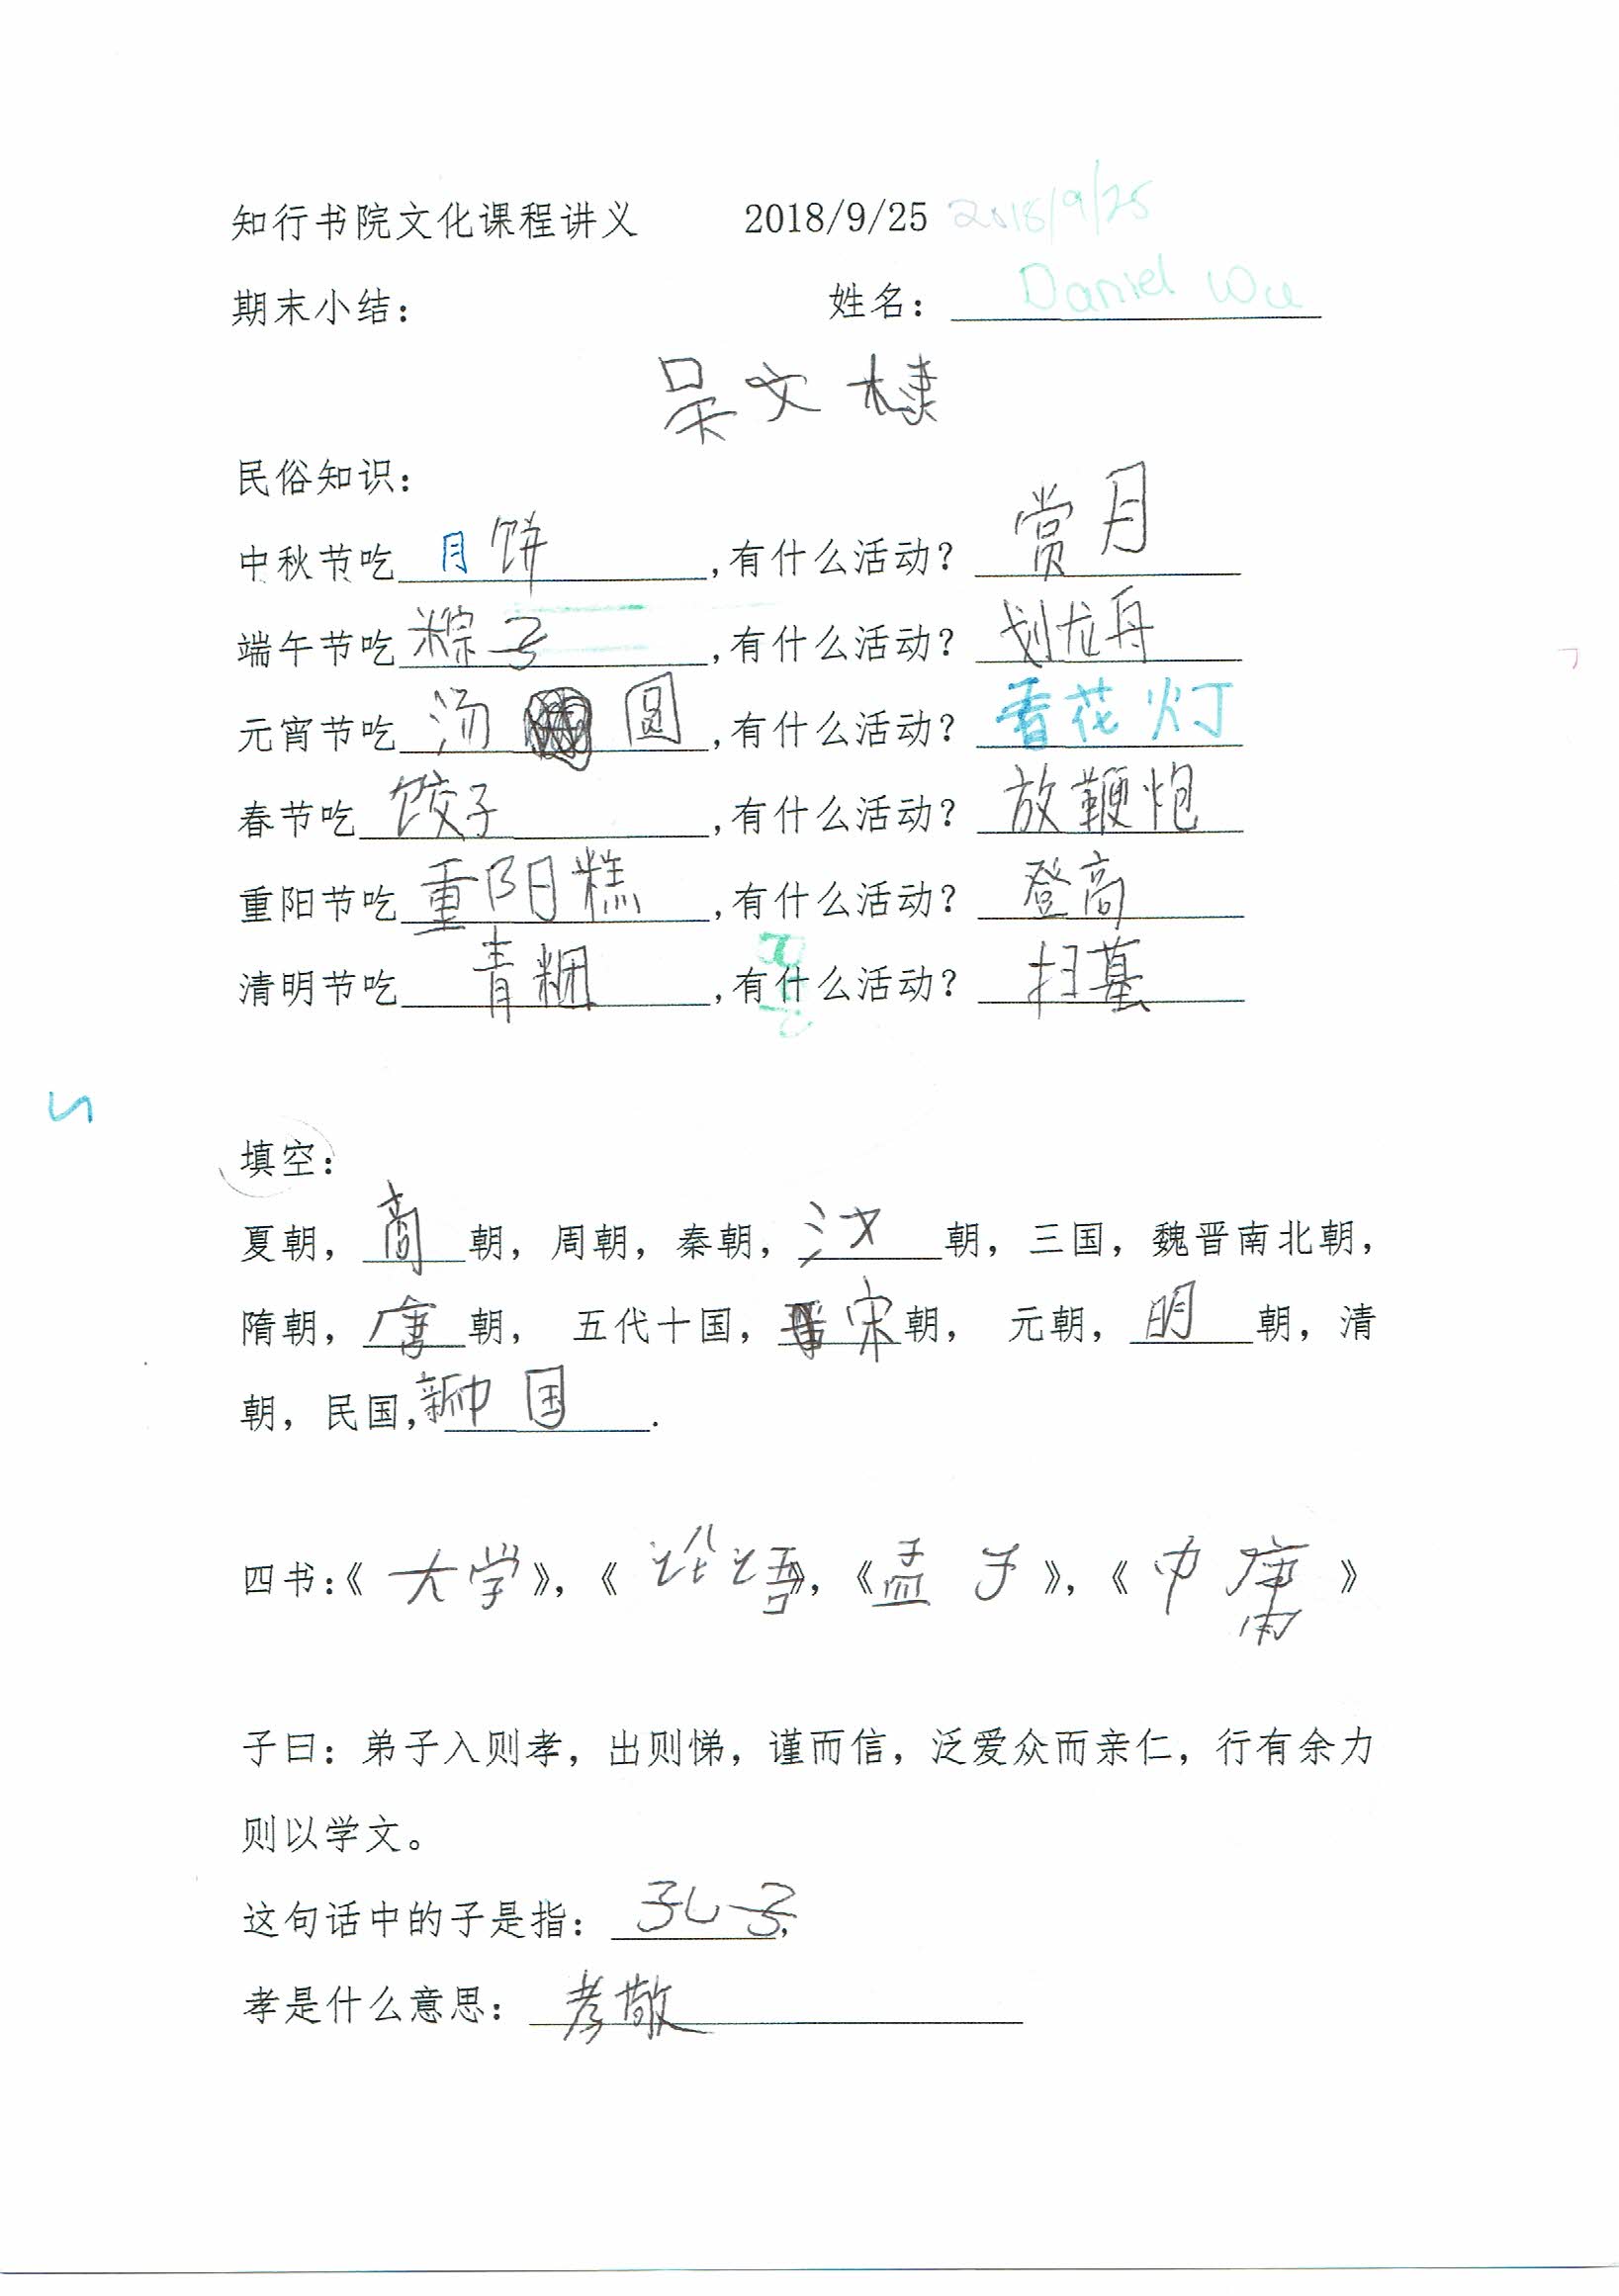 知行书院文化课程讲义 2018/9/25 2018/9/25
期末小结： 姓名： Daniel Wu
吴文棣
民俗知识：
中秋节吃月饼，有什么活动？赏月
端午节吃粽子，有什么活动？划龙舟
元宵节吃汤圆，有什么活动？看花灯
春节吃饺子，有什么活动？放鞭炮
重阳节吃重阳糕，有什么活动？登高
清明节吃青粿，有什么活动？扫墓
填空：
夏朝，商朝，周朝，秦朝，汉朝，三国，魏晋南北朝，
隋朝，唐朝， 五代十国，宋朝， 元朝，明朝，清
朝，民国，新中国.
四书：《大学》，《论语》，《孟子》，《中庸》
子曰：弟子入则孝，出则悌，谨而信，泛爱众而亲仁，行有余力
则以学文。
这句话中的子是指：孔子，
孝是什么意思：孝敬